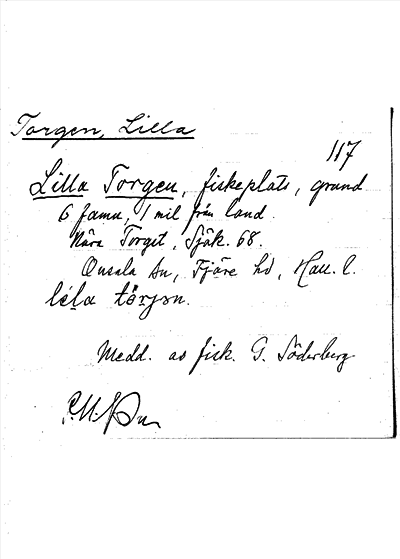 Torgen, Lilla
117
Lilla Torgen, fiskeplats, grund
6 famn, 1 mil från land.
Nära Torget, Sjök. 68.
Onsala sn, Fjäre hd, Hall. l.
Medd. av fisk. G. Söderberg